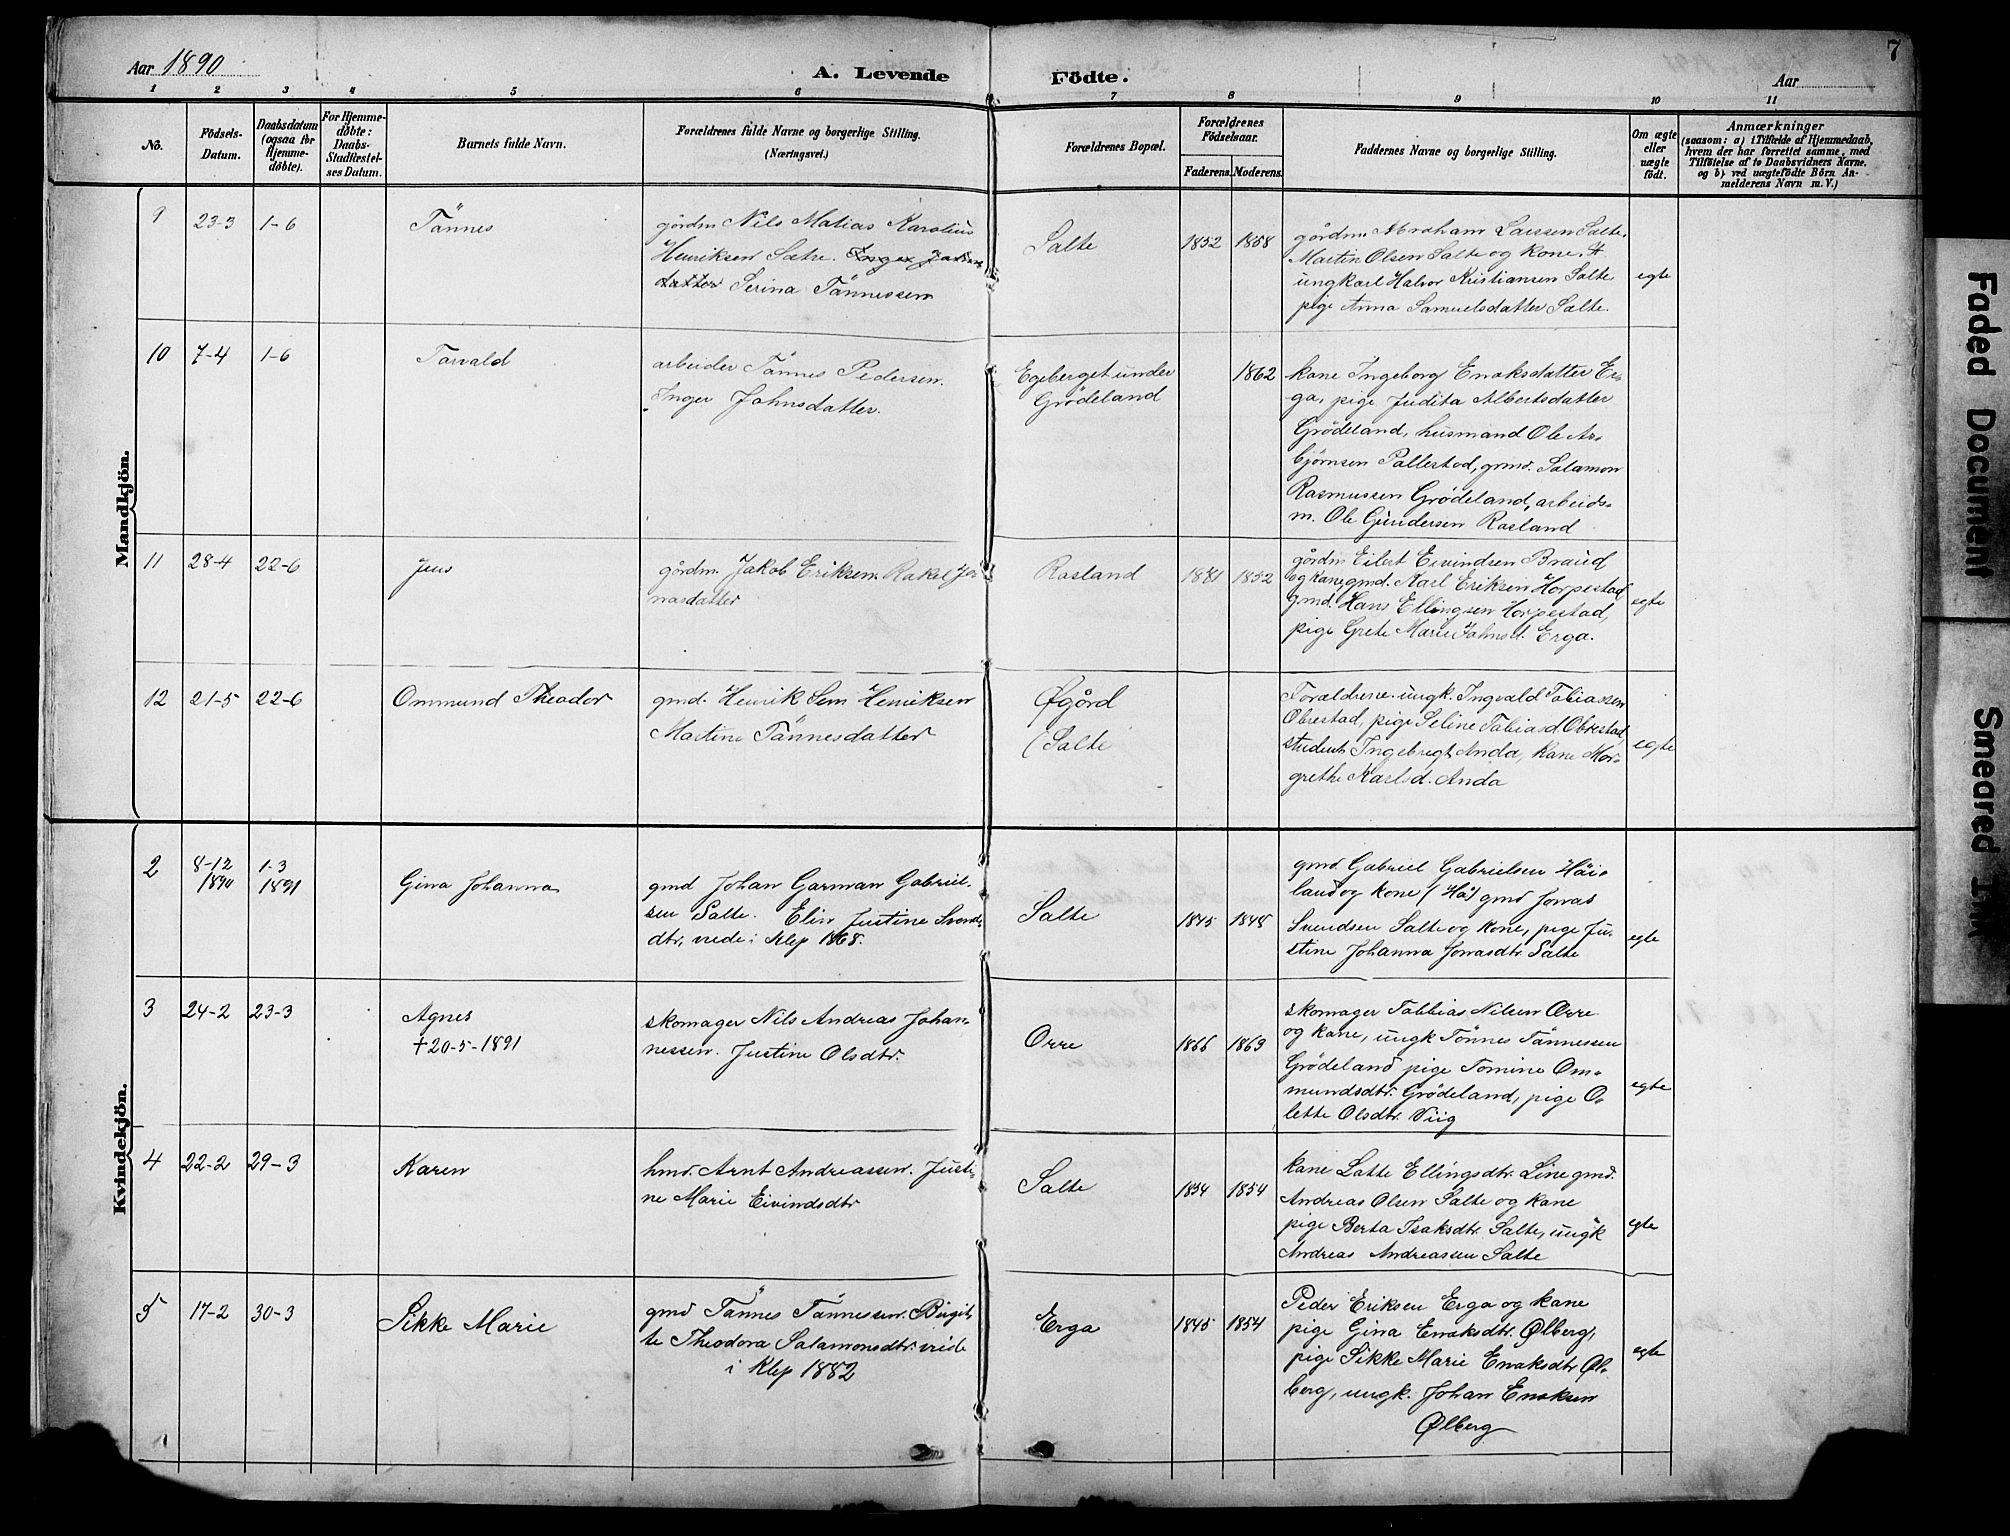 7
Aar 1890
A. Levende Födte.
Aar
1 2 3 4 5 6 7 8 9 10 11
No.
Födsels-
Datum.
Daabsdatum
(ogsaa for
Hjemme-
døbte).
For Hjemme-
døbte:
Daabs-
Stadfæstel-
ses Datum.
Barnets fulde Navn.
Forældrenes fulde Navne og borgerlige Stilling.
(Næringsvei.)
Forældrenes Bopæl.
Forældrenes
Födselsaar.
Faderens. Moderens.
Faddernes Navne og borgerlige Stilling.
Om ægte
eller
uægte
født.
Anmærkninger
(saasom: a) i Tilfælde af Hjemmedaab,
hvem der har forrettet samme, med
Tilföielse af to Daabsvidners Navne.
og b) ved uægtefödte Börn An-
melderens Navn m. V.)
Mandkjön.
9 23-3 1-6 Tönnes
gårdm Nils Matias Karolius
Henriksen Sætre. Inger Jahns
datter Serina Tönnessen
Salte 1852 1858
gårdm. Abraham Larssen Salte,
Martin Olsen Salte og kone,
ungkarl Halvor Kristiansen Salte
pige Anna Samuelsdatter Salte.
egte
10 7-4 1-6 Torvald
arbeider Tönnes Pedersen.
Inger Johnsdatter.
Egeberget under
Grödeland
1862
kone Ingeborg Enoksdatter Er-
ga, pige Judita Albertsdatter
Grödeland, husmand Ole As-
bjørnsen Pollestad, gmd. Salamon
Rasmussen Grödeland, arbeids-
m. Ole Gundersen Rosland
11 28-4 22-6 Jens
gårdm. Jakob Eriksen. Rakel Jo
nasdatter
Rosland 1852
gårdm Eilert Eivindsen Braud
og kone gmd. Karl Eriksen Horpestad
gmd. Hans Ellingsen Horpestad,
pige Grete Marie Johnsd. Erga.
egte
12 21-5 22-6 Ommund Theodor
gmd. Henrik Sem Henriksen
Martine Tönnesdatter
Øgård
(Salte
Forældrene. ungk. Ingvald Tobiassen
Obrestad, pige Seline Tobiasd. Obrestad
student Ingebregt Anda, kone Mar-
grethe Karlsd. Anda
egte
Kvindekjön.
2 8-12 1890 1-3 1891 Gina Johanna
gmd Johan Garman Gabriel-
sen Salte. Elin Justine Svends
dtr, viede i Klep 1868.
Salte 1845 1848
gmd Gabriel Gabrielsen Höi-
land og kone (Hå) gmd Jonas
Svendsen Salte og kone, pige Ju-
stine Johanna Jonasdtr. Salte
egte
3 24-2 23-3 Agnes
†20-5-1891
skomager Nils Andreas Johan-
nessen. Justine Olsdtr.
Orre 1866 1863
skomager Tobbias Nilsen Orre
og kone, ungk Tönnes Tönnessen
Grödeland pige Tomine Om-
mundsdtr. Grödeland, pige O-
lette Olsdtr. Viig
egte
4 22-2 29-3 Karen
hmd. Arnt Andreassen. Justi-
ne Marie Eivindsdtr
Salte 1854 1854
kone Lotte Ellingsdtr. Line gmd.
Andreas Olsen Salte og kone
pige Berta Isaksdtr. Salte, ungk
Andreas Andreassen Salte
egte
5 17-2 30-3 Sikke Marie
gmd Tönnes Tönnessen. Birgit-
te Theodora Salamonsdtr. viede
i Klep 1882
Erga 1845 1854
Peder Eriksen Erga og kone
pige Gina Enoksdtr. Ølberg,
pige Sikke Marie Enoksdtr Øl-
berg, ungk. Johan Enoksen
Ølberg
egte
Faded Document
Smeared Ink